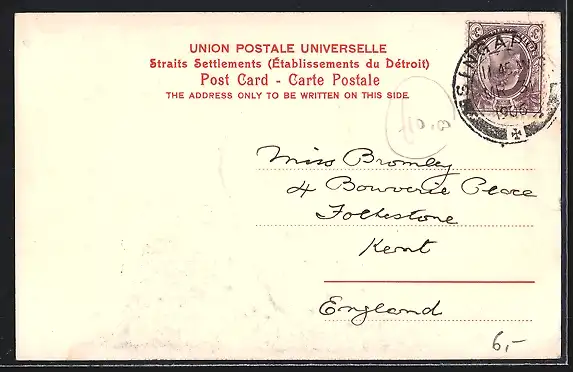 UNION POSTALE UNIVERSELLE
Straits Settlements (Établissements du Détroit)
Post Card - Carte Postale
THE ADDRESS ONLY TO BE WRITTEN ON THIS SIDE.
SINGAP
1906
£10.00
Miss Bromley
4 Bouverie Place
Folkestone
Kent
England
6,-